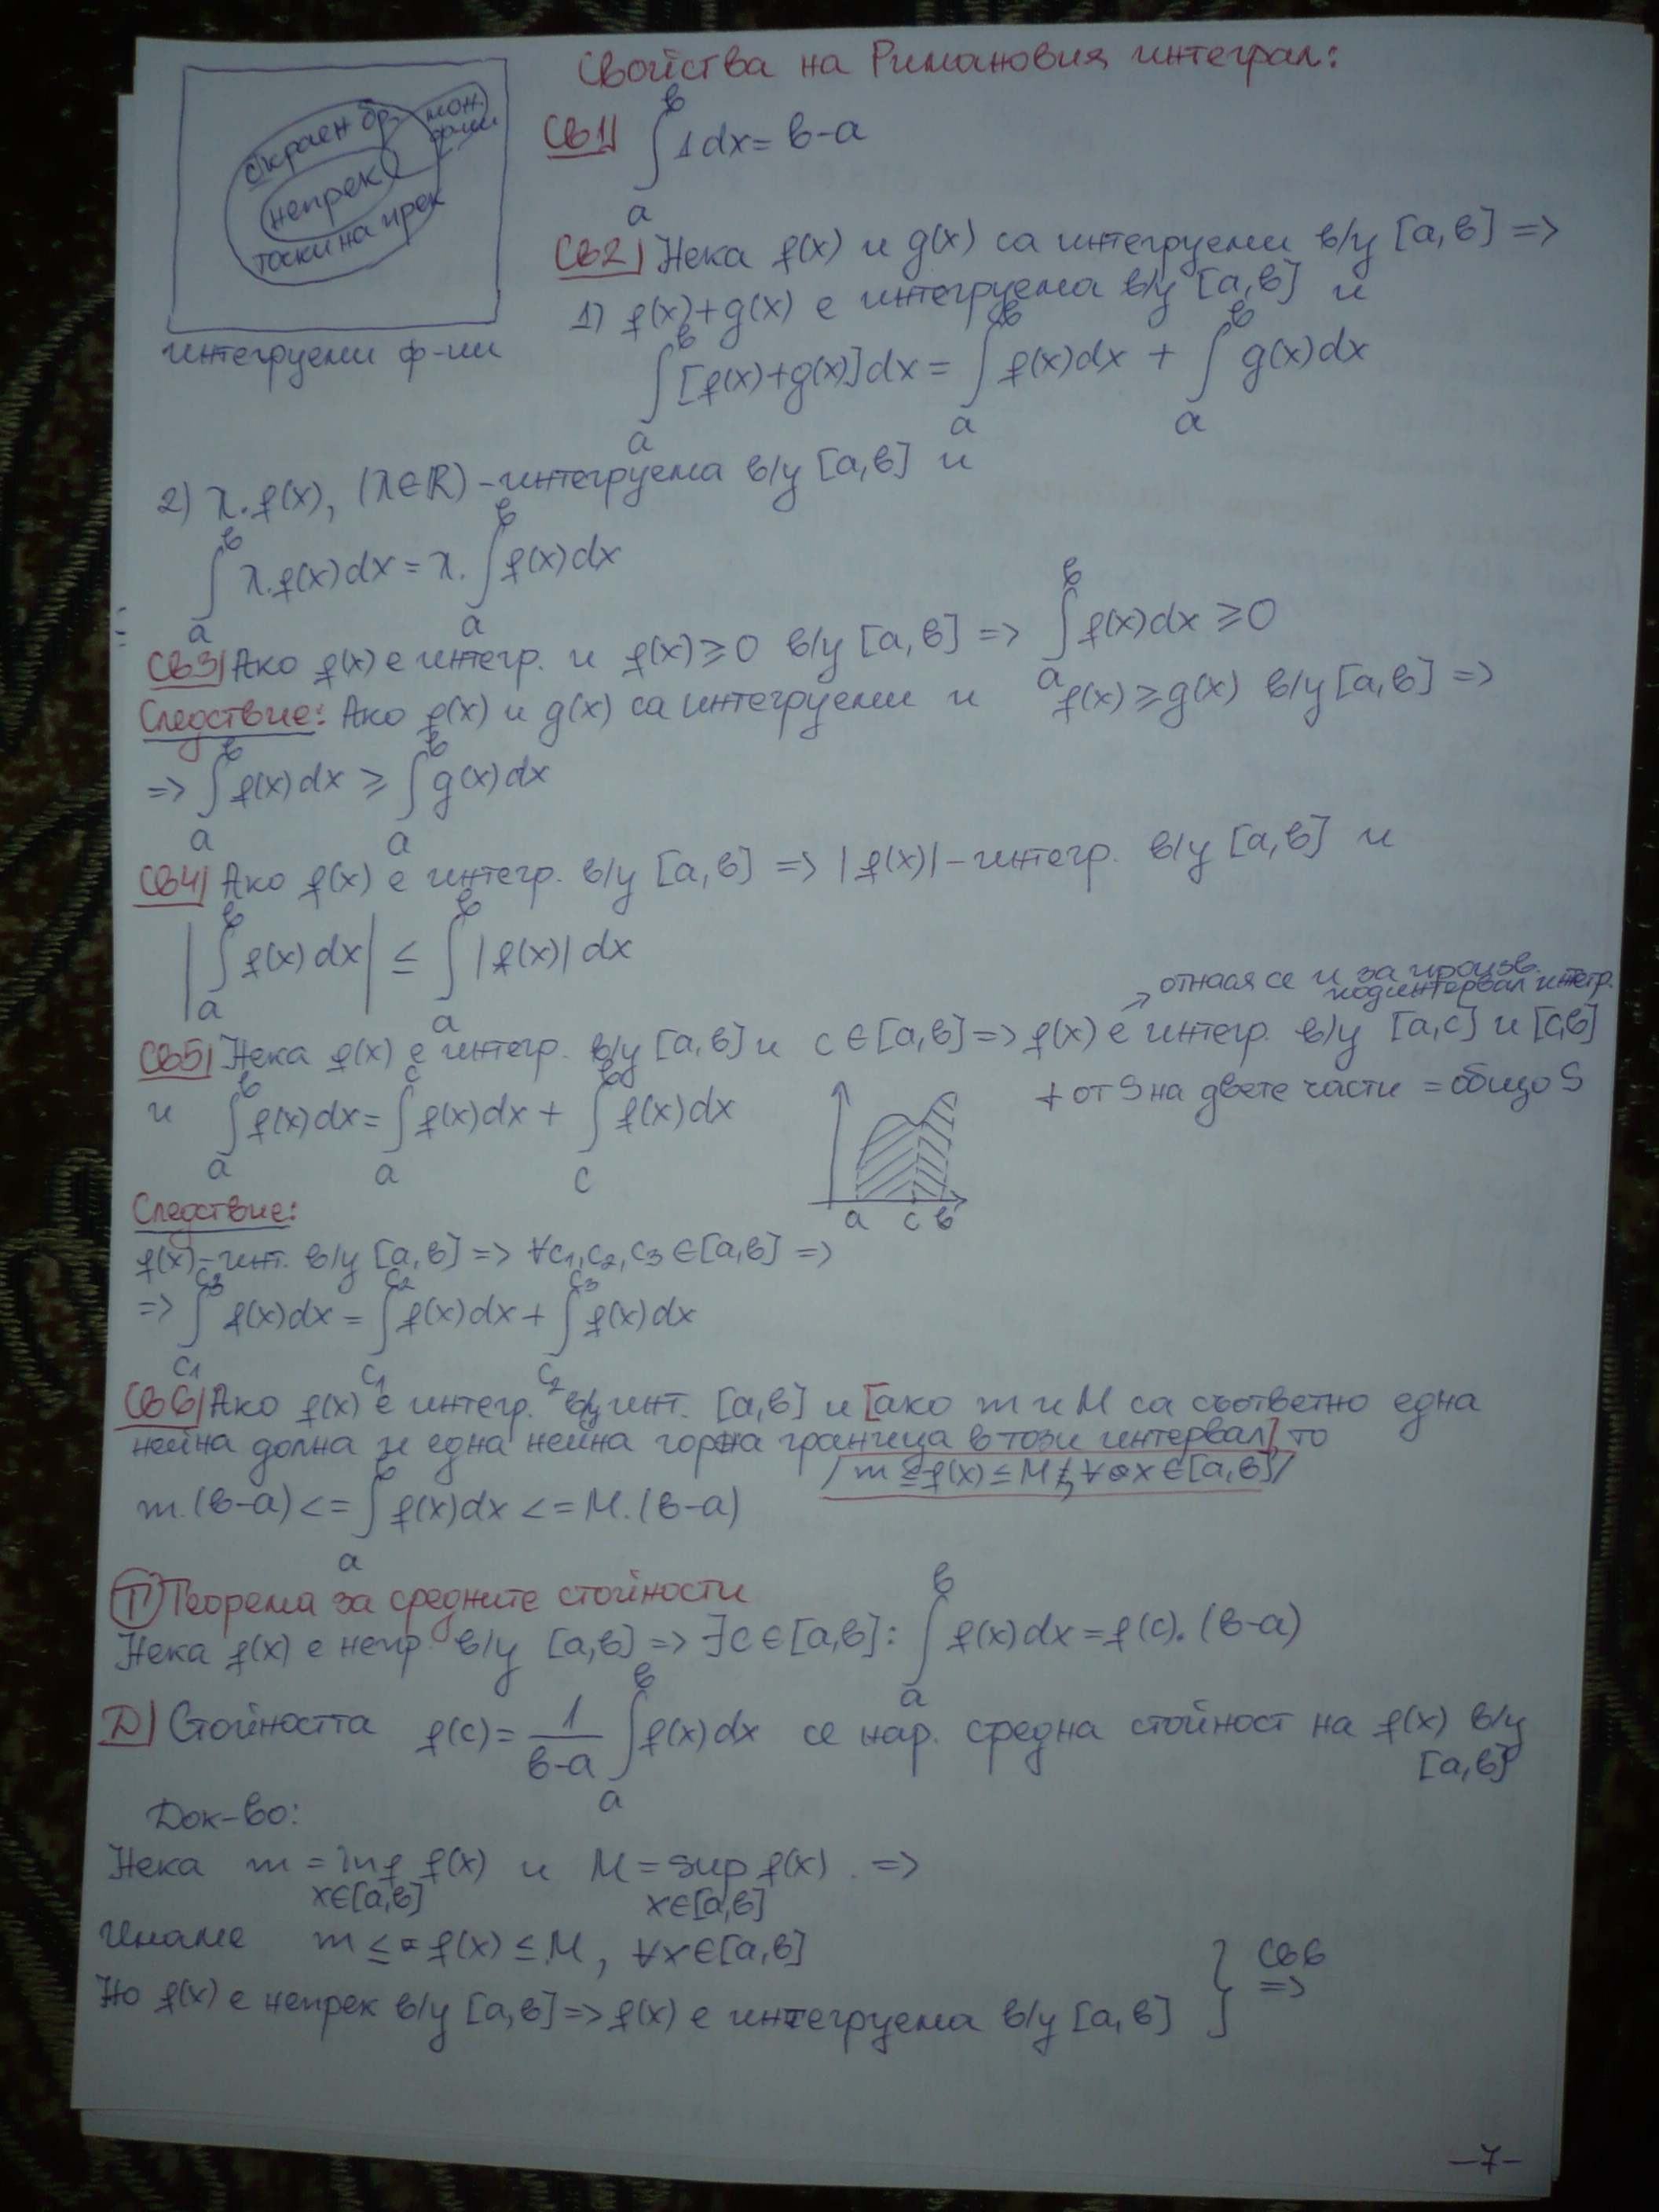 Свойства на Римановия интеграл:
с/краен бр.
непрек
точки на прек
мон.
ф-ии
интегруеми ф-ии
Св1| ∫ₐᵇ 1dx = b-a
Св2| Нека f(x) и g(x) са интегруеми в/у [a,b] =>
1) f(x)+g(x) е интегруема в/у [a,b] и
∫ₐᵇ [f(x)+g(x)]dx = ∫ₐᵇ f(x)dx + ∫ₐᵇ g(x)dx
2) λ.f(x), (λ∈ℝ) - интегруема в/у [a,b] и
∫ₐᵇ λ.f(x)dx = λ. ∫ₐᵇ f(x)dx
Св3| Ако f(x) е интегр. и f(x) ≥ 0 в/у [a,b] => ∫ₐᵇ f(x)dx ≥ 0
Следствие: Ако f(x) и g(x) са интегруеми и f(x) ≥ g(x) в/у [a,b] =>
=> ∫ₐᵇ f(x)dx ≥ ∫ₐᵇ g(x)dx
Св4| Ако f(x) е интегр. в/у [a,b] => |f(x)| - интегр. в/у [a,b] и
|∫ₐᵇ f(x)dx| ≤ ∫ₐᵇ |f(x)| dx
→ отнася се и за произв.
подинтервал интегр.
Св5| Нека f(x) е интегр. в/у [a,b] и c∈[a,b] => f(x) е интегр. в/у [a,c] и [c,b]
и ∫ₐᵇ f(x)dx = ∫ₐᶜ f(x)dx + ∫꜀ᵇ f(x)dx
+ от S на двете части = общо S
a c b
Следствие:
f(x) - инт. в/у [a,b] => ∀c₁,c₂,c₃ ∈[a,b] =>
=> ∫_{c₁}^{c₃} f(x)dx = ∫_{c₁}^{c₂} f(x)dx + ∫_{c₂}^{c₃} f(x)dx
Св6| Ако f(x) е интегр. в/у инт. [a,b] и [ако m и M са съответно една
нейна долна и една нейна горна граница в този интервал], то
/m ≤ f(x) ≤ M, ∀x∈[a,b]/
m.(b-a) <= ∫ₐᵇ f(x)dx <= M.(b-a)
Т Теорема за средните стойности
Нека f(x) е непр. в/у [a,b] => ∃c∈[a,b]: ∫ₐᵇ f(x)dx = f(c).(b-a)
D| Стойността f(c) = 1/(b-a) ∫ₐᵇ f(x)dx се нар. средна стойност на f(x) в/у
[a,b]
Док-во:
Нека m = inf f(x) и M = sup f(x) . =>
x∈[a,b] x∈[a,b]
Имаме m ≤ f(x) ≤ M, ∀x∈[a,b]
Но f(x) е непрек в/у [a,b] => f(x) е интегруема в/у [a,b] } Св6 =>
-7-